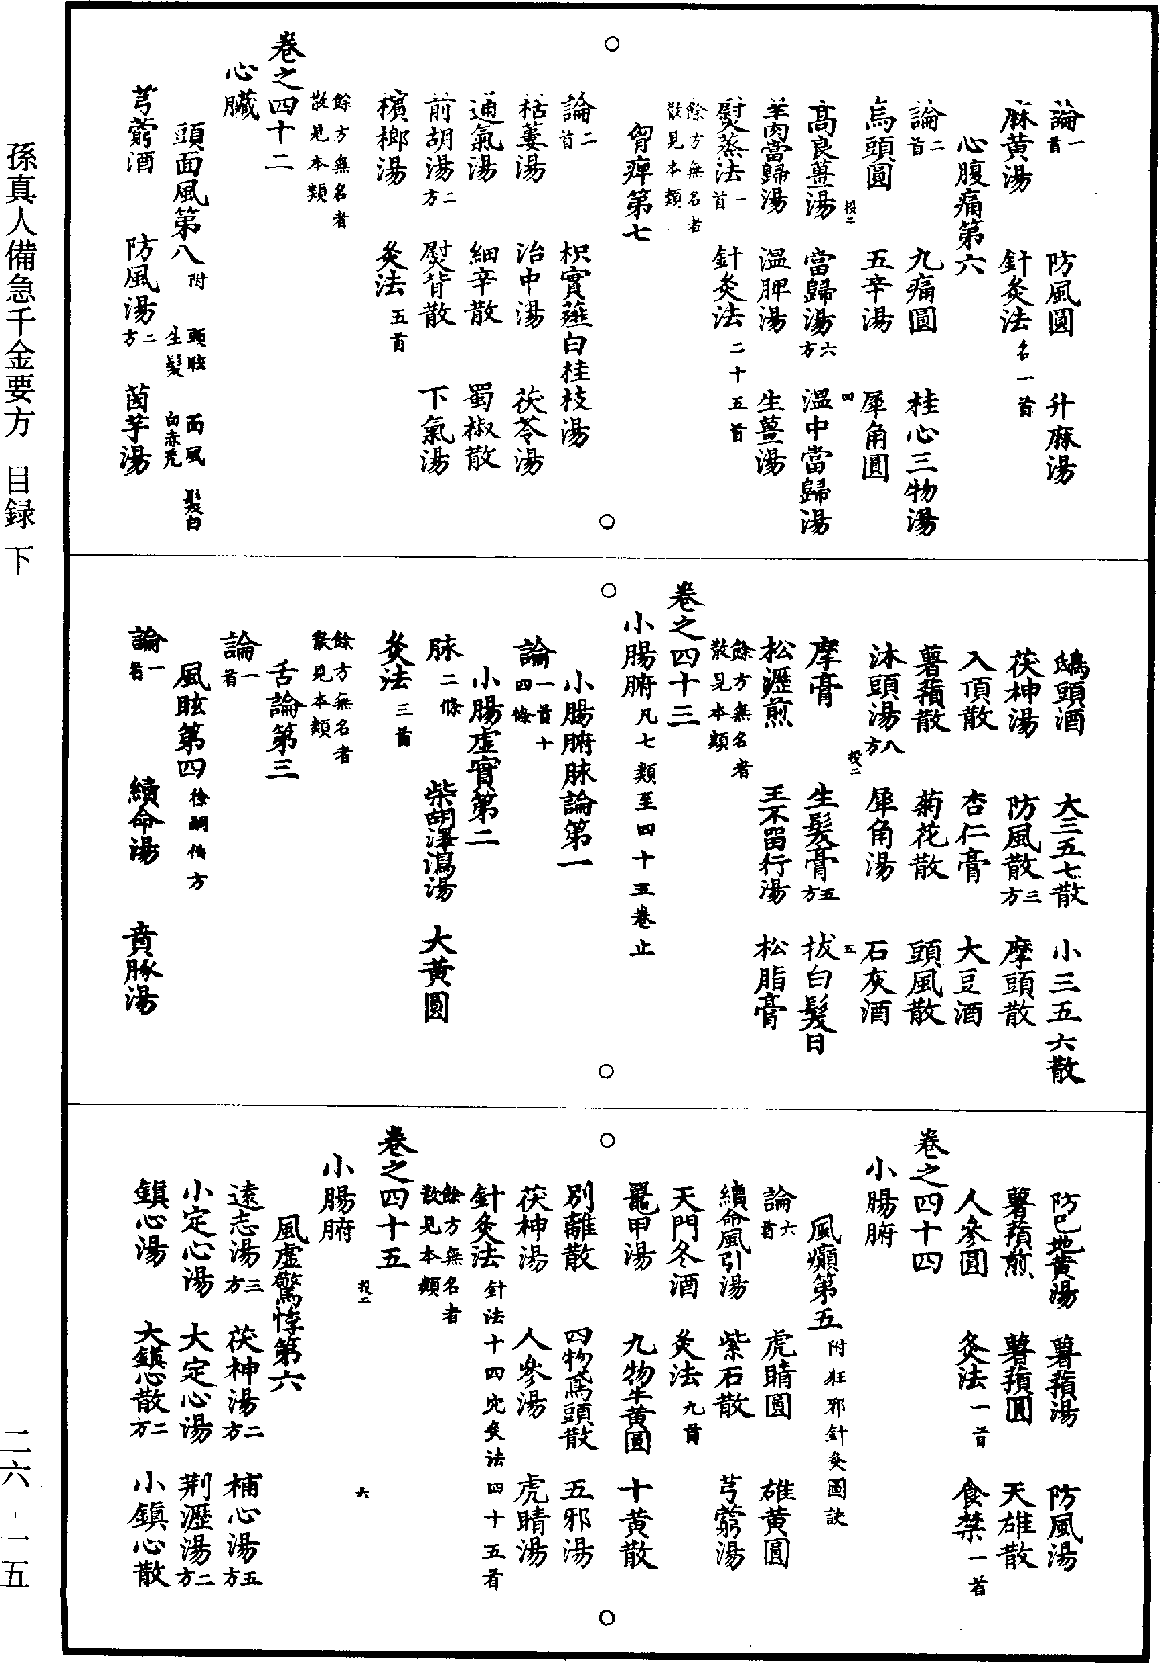 論一首　防風圓　升麻湯
麻黃湯　針灸法名一首
心腹痛第六
論二首　九痛圓　桂心三物湯
烏頭圓　五辛湯　犀角圓
投二　四
高良薑湯　當歸湯六方　溫中當歸湯
羊肉當歸湯　溫脾湯　生薑湯
熨蒸法一首　針灸法二十五首
餘方無名者散見本類
胷痺第七
論二首　枳實薤白桂枝湯
栝蔞湯　治中湯　茯苓湯
通氣湯　細辛散　蜀椒散
前胡湯二方　熨背散　下氣湯
檳榔湯　灸法五首
餘方無名者散見本類
卷之四十二
心臟
頭面風第八附　頭眩　面風　髮白　生髮　白赤禿
芎藭酒　防風湯二方　茵芋湯
鴟頭酒　大三五七散　小三五六散
茯神湯　防風散三方　摩頭散
入頂散　杏仁膏　大豆酒
薯蕷散　菊花散　頭風散
沐頭湯八方　犀角湯　石灰酒
投二　五
摩膏　生髮膏五方　拔白髮日
松瀝煎　王不留行湯　松脂膏
餘方無名者散見本類
卷之四十三
小腸腑凡七類至四十五卷止
小腸腑脉論第一
論一首十四條
小腸虛實第二
脉二條　柴胡澤瀉湯　大黃圓
灸法三首
餘方無名者散見本類
舌論第三
論一首
風眩第四徐嗣伯方
論一首　續命湯　賁豚湯
防巳地黃湯　薯蕷湯　防風湯
薯蕷煎　薯蕷圓　天雄散
人參圓　灸法一首　食禁一首
卷之四十四
小腸腑
風癲第五附狂邪針灸圖訣
論六首　虎睛圓　雄黃圓
續命風引湯　紫石散　芎藭湯
天門冬酒　灸法九首
鼉甲湯　九物牛黃圓　十黃散
別離散　四物鳶頭散　五邪湯
茯神湯　人參湯　虎睛湯
針灸法針法十四穴灸法四十五首
餘方無名者散見本類
卷之四十五
投二　六
小腸腑
風虛驚悸第六
遠志湯三方　茯神湯二方　補心湯五方
小定心湯　大定心湯　荊瀝湯二方
鎮心湯　大鎮心散二方　小鎮心散
孫真人備急千金要方　目録　下
二六-一五